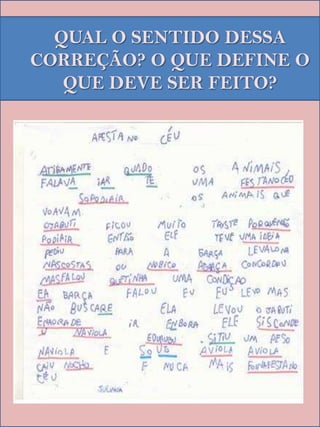 QUAL O SENTIDO DESSA
CORREÇÃO? O QUE DEFINE O
QUE DEVE SER FEITO?
AFESTA NO CÉU
ATIGAMENTE QUADO OS ANIMAIS,
FALAVA IAR TE UMA FESTANOCÉO
SOPODIAIR OS ANIMAIS QUE
VOAVAM.
OJABUTI FICOU MUITO TRISTE PORQUENÃO
PODIAIR ENTÃO ELE TEVE UMA IDEIA
PEDIU PARA A GARÇA LEVALONA
NASCOSTAS OU NUBICO AGARÇA CONCORDOU
MASFALOU QUETINHA UMA CONDIÇÃO
EA GARÇA FALOU EU EU LEVO MAS
NÃO BUSCARE ELA LEVOU O JABUTI
EMORADE IR ENBORA ELE SISCONDE
U NAVIOLA SITIU UM PESO
NAVIOLA E SO US AVIOLA AVIOLA
CAIU NOCHÃO E NUCA MAIS
CÉU JULIANA